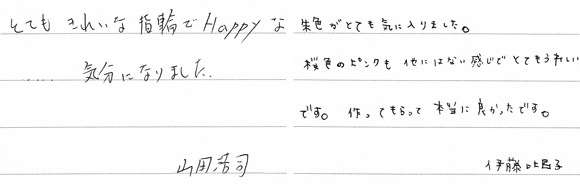 とても きれいな 指輪で Happy な
気分になりました.
山田浩司
朱色がとても気に入りました。
桜色のピンクも 他にはない感じでとてもうれしい
です。 作ってもらって 本当に良かったです。
伊藤